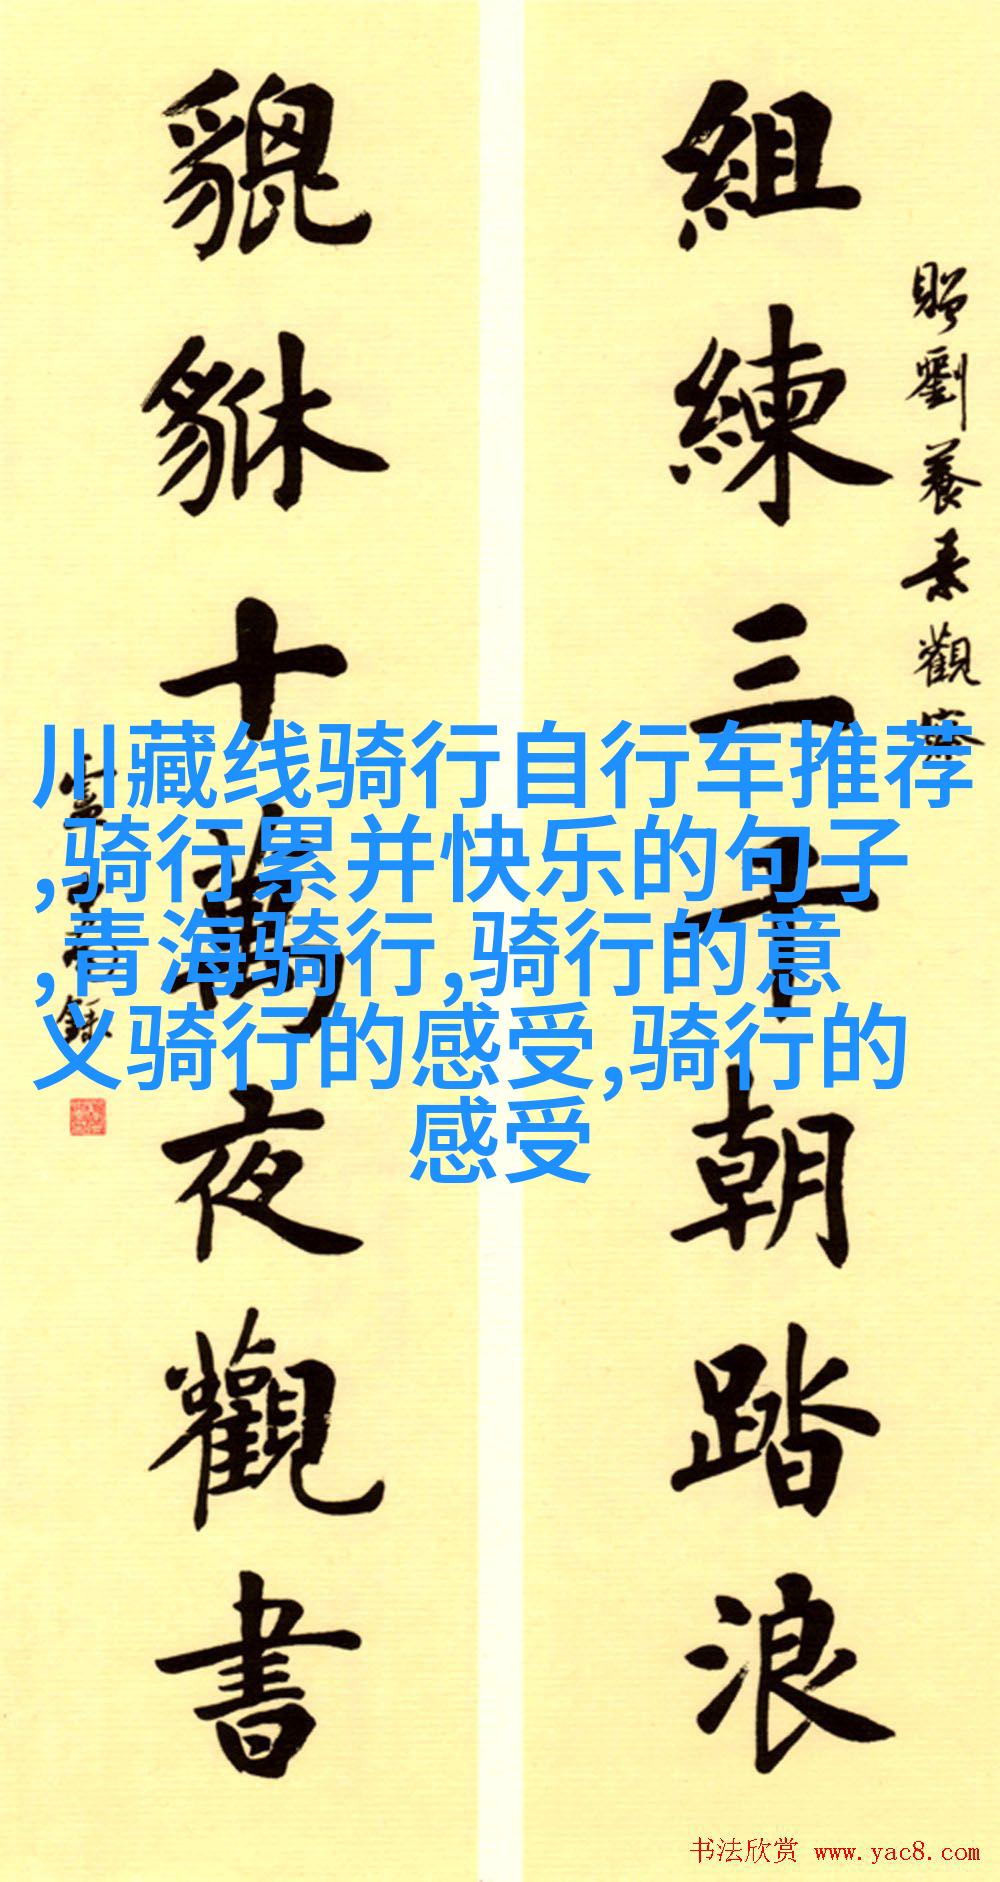 贈劉養素觀察
組練三千朝踏浪
貔貅十萬夜觀書
川藏线骑行自行车推荐
,骑行累并快乐的句子
,青海骑行,骑行的意
义骑行的感受,骑行的
感受
书法欣赏 www.yac8.com